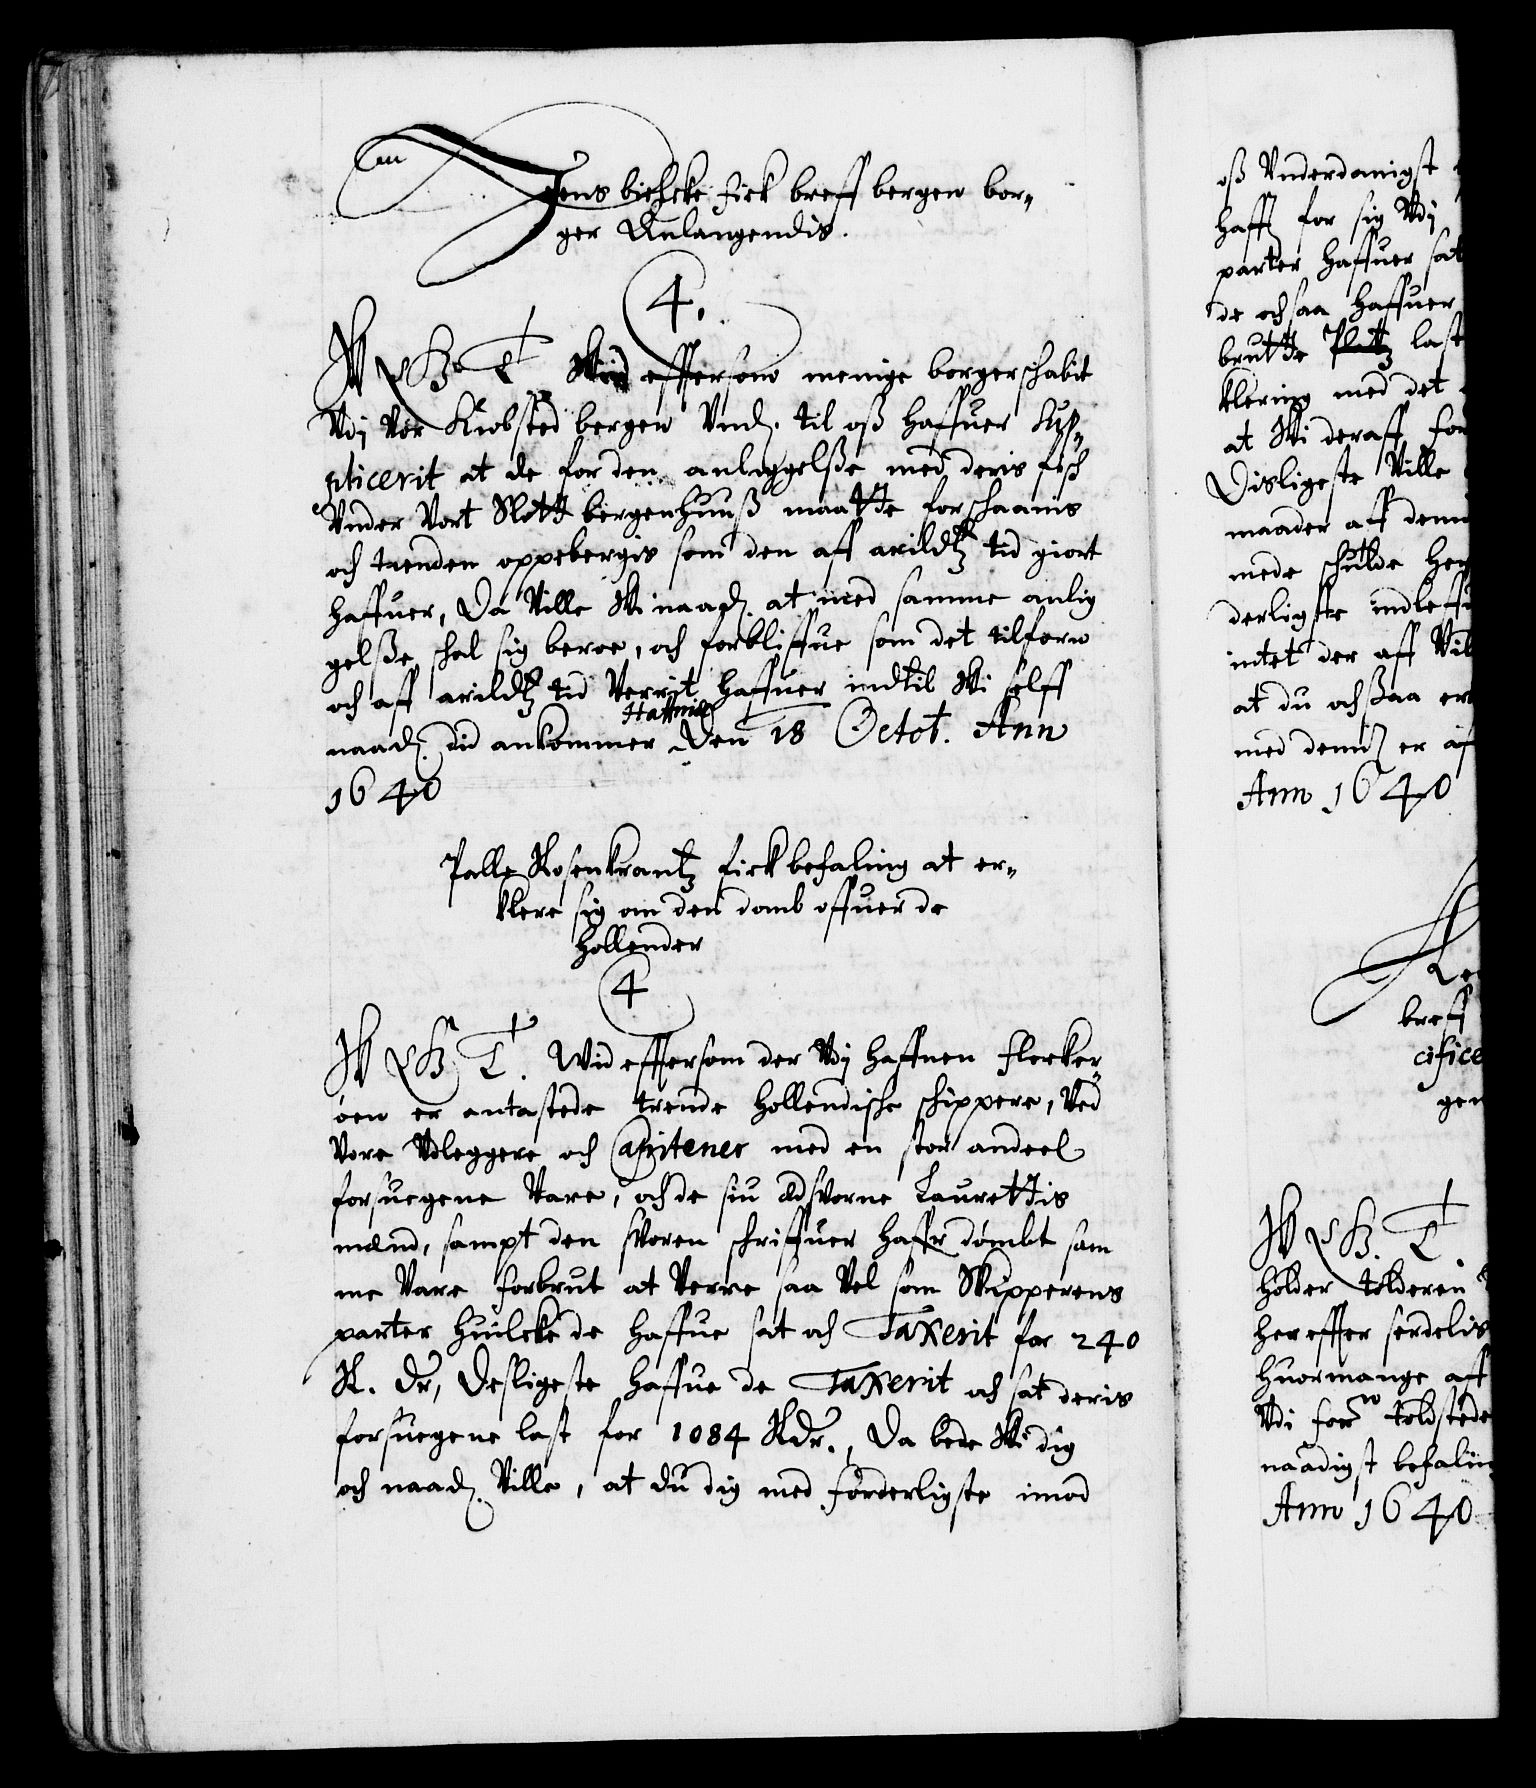 Jens bielcke fick breff bergen bor¬
ger Anlangendis.
4.
W G T Wid effersom menige borgerschabit
Vdj Vor Kiøbsted bergen Vnd. til oß haffuer Sup¬
plicerit at de for den anleggelße med deris fisch
Vnder Vort Slott bergenhuuß maatte forschaanis
och tienden oppebergis som den aff arildtz tid giort
haffuer, Da Ville Wi naad. at med samme anlig
gelße schal sig beroe, och forbliffue som det tilforn
och aff arildtz tid Verrit haffuer indtil Wi self
naad. did ankommer Haffniæ Den 18 Octob. Ann
1640
Palle Rosenkrantz fick befaling at er¬
klere sig om den domb offuer de
Hollender
4
W G T. Wid effersom der Vdj Haffnen Flecker¬
øen er antastede trende Hollendische schippere, Ved
Vore Vdleggere och Capitener med en stor andeel
forsuegene Vare, och de siu Edsvorne Laurettis
mænd, sampt den svoren schriffuer haffr dømbt sam
me Vare forbrut at Verre saa Vel som Skipperens
parter huilcke de haffue sat och Taxerit for 240
R. Dr, Desligeste haffue de Taxerit och sat deris
forsuegene last for 1084 Rdr., Da bede Wi dig
och naad. Ville, at du dig med forderligste imod
oß Vnderdanigst
haff for sig Vdj
parter haffuer sat
de och saa haffuer
brutte last
klering med det
at Wi deraff for
Disligeste Ville
maader aff dem
mede schulde her
derligste indleff
intet der aff Vil
at du och saa er
med dennem er af
Ann 1640
breff
cifice
gen
W G. T
holder tolderen
her effter serdelis
huormange aff
Vdi for toldstede
naadigst befaling
Ann 1640